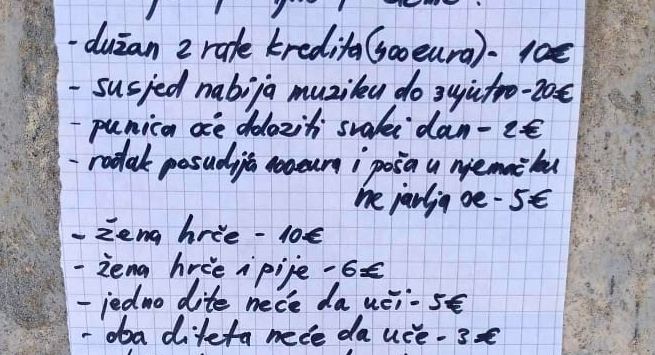 - dužan 2 rate kredita (400 eura) - 10€
- susjed nabija muziku do 3 ujutro - 20€
- punica oće dolaziti svaki dan - 2€
- rođak posudija 1000 eura i poša u njemačku
ne javlja se - 5€
- žena hrče - 10€
- žena hrče i pije - 6€
- jedno dite neće da uči - 5€
- oba diteta neće da uče - 3€